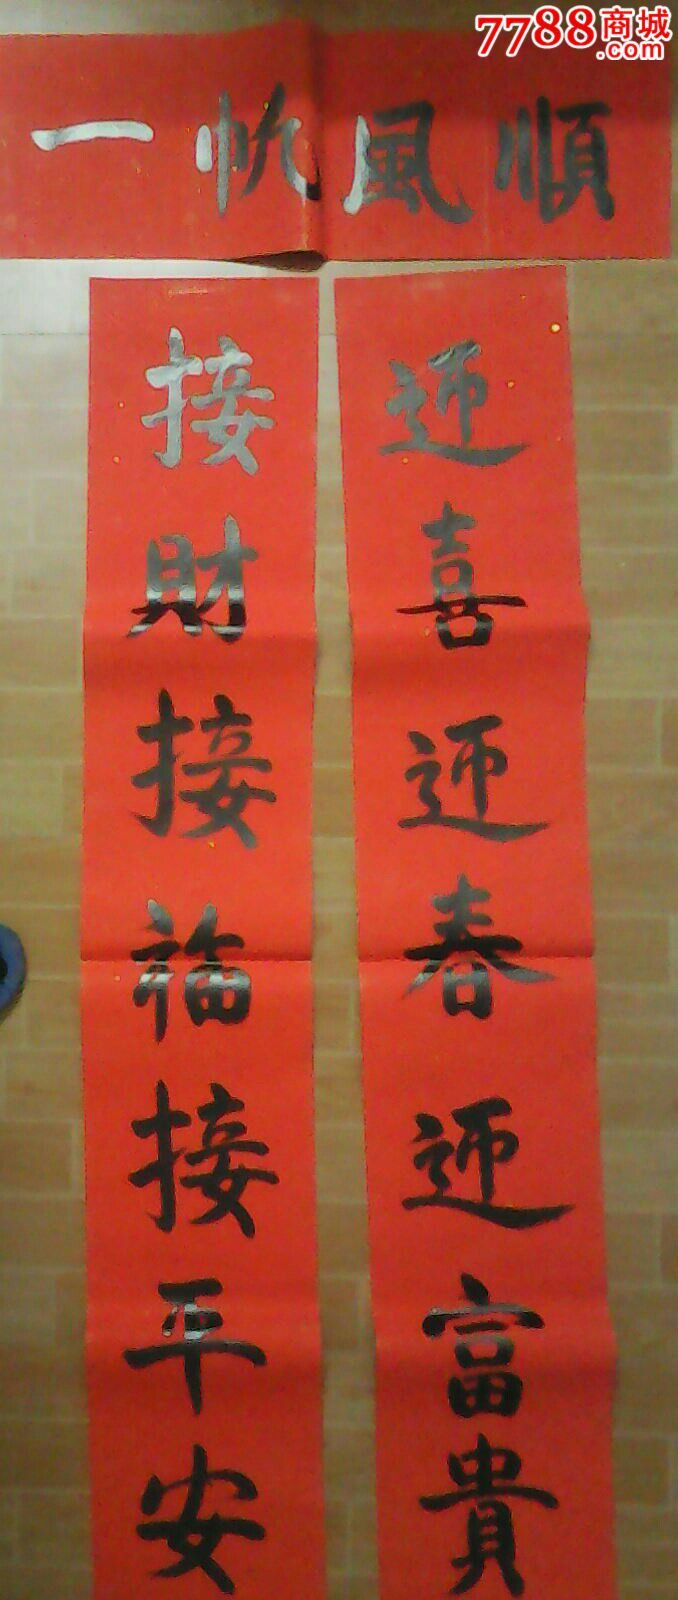 7788商城
.com
一帆風順
迎喜迎春迎富貴
接財接福接平安